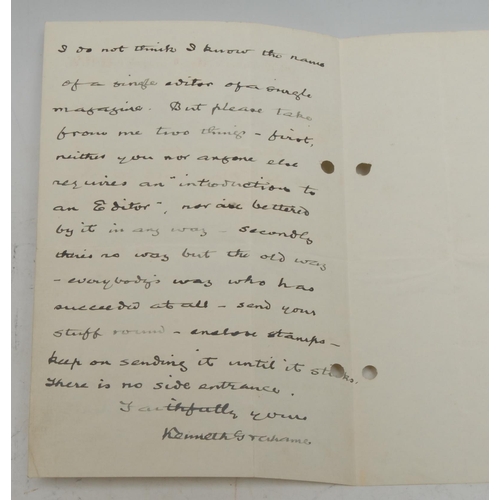 I do not think I know the name
of a single editor of a single
magazine. But please take
from me two things - first,
neither you nor anyone else
requires an "introduction to
an Editor", nor is bettered
by it in any way - secondly
there's no way but the old way
- everybody's way who has
succeeded at all - send your
stuff round - enclose stamps -
keep on sending it until it sticks.
There is no side entrance.
Faithfully yours
Kenneth Grahame